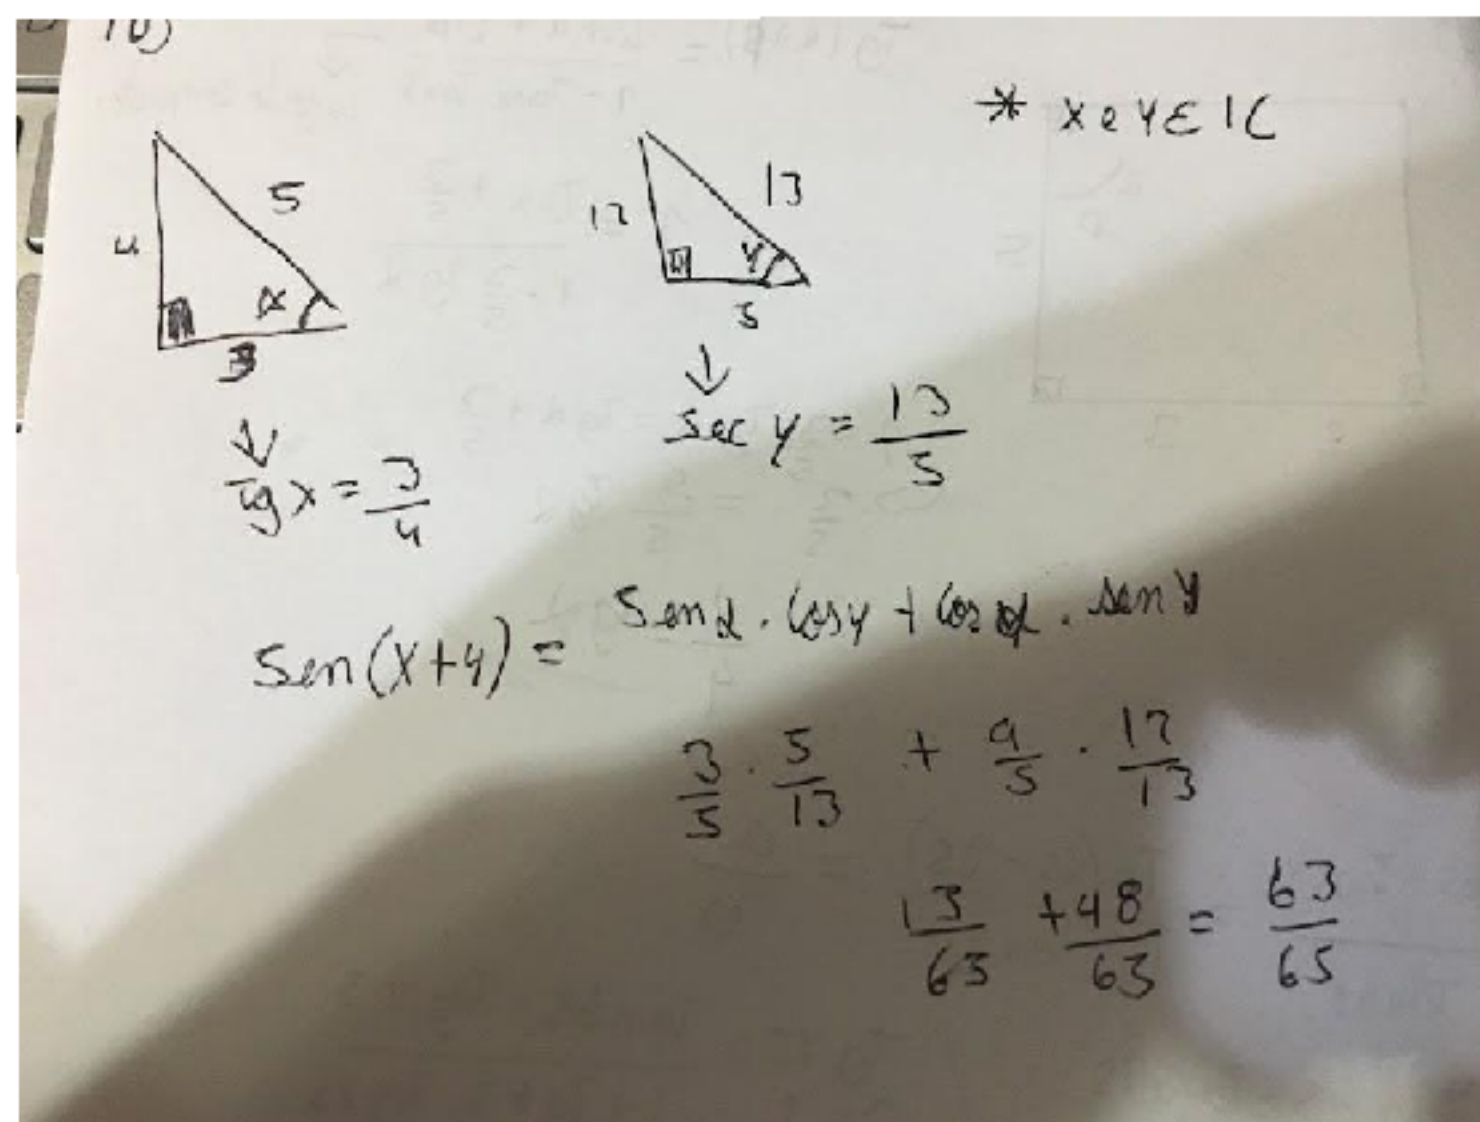 10)
* x e y ∈ 1C
5
4
x
3
13
12
y
5
↓
↓
tg x = 3/4
sec y = 13/5
sen(x+y) = sen x . cos y + cos x . sen y
3/5 . 5/13 + 4/5 . 12/13
15/65 + 48/65 = 63/65